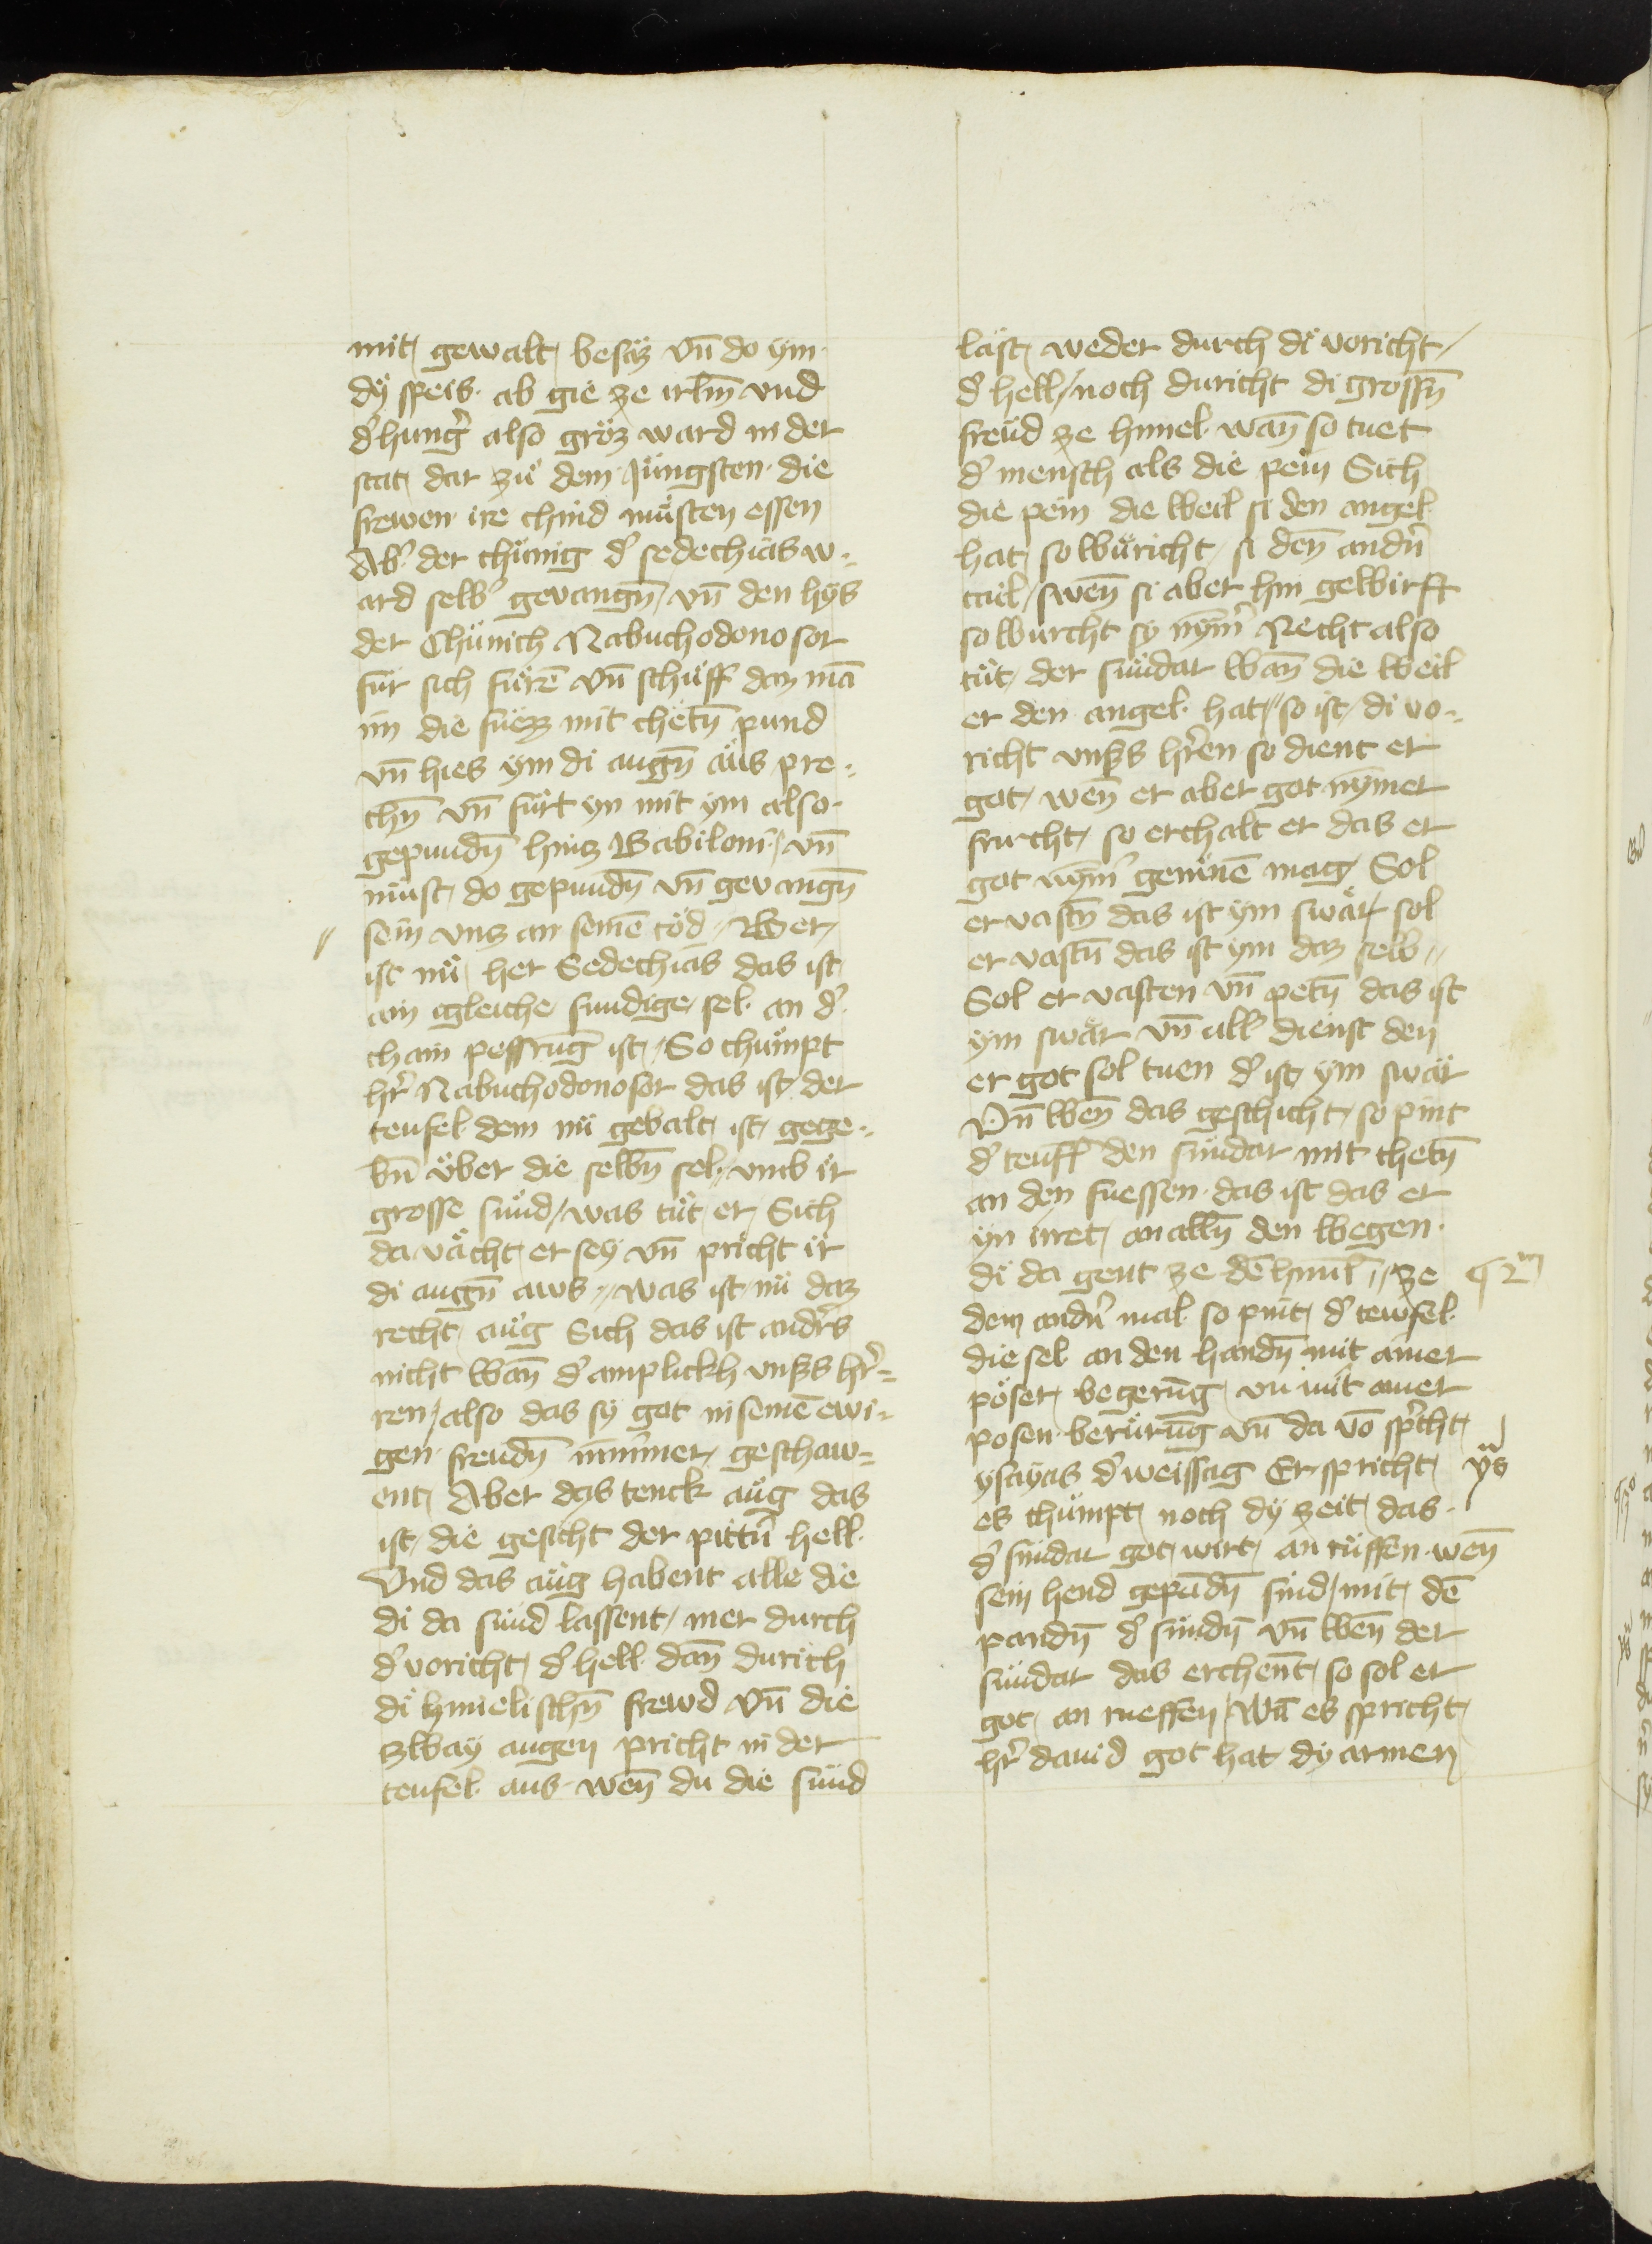 mit gewalt besäz vn̄ do ym
dÿ speis ab gie ze irl̄m vnd
d' hung' also gröz ward in der
stat dar zuͤ dem Jüngsten die
frewen ire chind muͤsten essen
Ab' der chuͤnig d' sedechias w=
ard selb' gevangn̄ / vn̄ den hÿs
der Chuͤnich Nabuchodonosor
fur sich fuͤrē vn̄ schuͤff daz mā
im die fuͤezz mit chetn̄ pund
vn̄ hies ym di augn̄ aus pre=
chn̄ vn̄ fuͤrt yn mit ym also
gepundn̄ hinz Babiloni / vn̄
muͤst do gepundn̄ vn̄ gevangn̄
sein vnz an seinē töd // Wer
ist nuͤ her Sedechias das ist
ain igleiche sundige sel an d'
chain pessrūg ist // So chuͤmpt
hr̄ Nabuchodonosor das ist der
teufel dem nuͤ gebalt ist gege=
bn̄ uͤber die selbn̄ sel vmb ir
grosse suͤnd / was tuͤt er Sich
da vächt er sey vn̄ pricht ir
di augn̄ aws // was ist nu daz
recht aug Sich das ist and'rs
nicht wan̄ d' amplickh vns's hr̄=
ren / also das sy got in seinē ewi=
gen freudn̄ nimmer geschaw=
ent Aber das tenck aug das
ist die gesicht der pittn̄ hell
Vnd das aug habent alle die
di da suͤnd lassent mer durch
d' voricht d' hell dan̄ durich
di himelischn̄ frewd vn̄ die
zway augen pricht in der
teufel aus wen̄ du die sund
läst weder durch di voricht /
d' hell / noch duricht di grossn̄
freud ze himel wan̄ so tuet
d' mensch als die pein Sich
die pein die weil si den angel
hat so wuͤricht si den̄ andn̄
tail / swen̄ si aber hin gewirfft
so wurcht sy nym̄' Recht also
tuͤt der sundar wan̄ die weil
er den angel hat // so ist di vo=
richt vns's hr̄en so dient er
got wen̄ er aber got nymer
furcht so erchalt er das er
got nym̄' geminē mag Sol
er vastn̄ das ist ym swär sol
er vastn̄ das ist ym daz selb //
Sol er vasten vn̄ petn̄ das ist
ym swär vn̄ all' dienst den
er got sol tuen d' ist ym swär
Vn̄ wen̄ das geschicht so pint
d' teuff' den sundar mit chetn̄
an den fuessen das ist das er
yn irret an alln̄ den wegen
di da gent ze dē himl // ze
dem andn̄ mal so pint d' tewfel
die sel an den handn̄ mit ainer
pöser begerūg vn mit ainer
posen beruͤrūg vn̄ da vō spr̄cht
ysayas d' weissag Er spricht
es chuͤmpt noch dy zeit das
d' sundar got wirt an ruͤffen wen̄
sein hend gepūdn̄ sind / mit dē
pandn̄ d' sundn̄ vn̄ wen̄ der
sundar das erchen̄t so sol er
got an rueffen / Wā es spricht
hr̄ dauid got hat dy armen